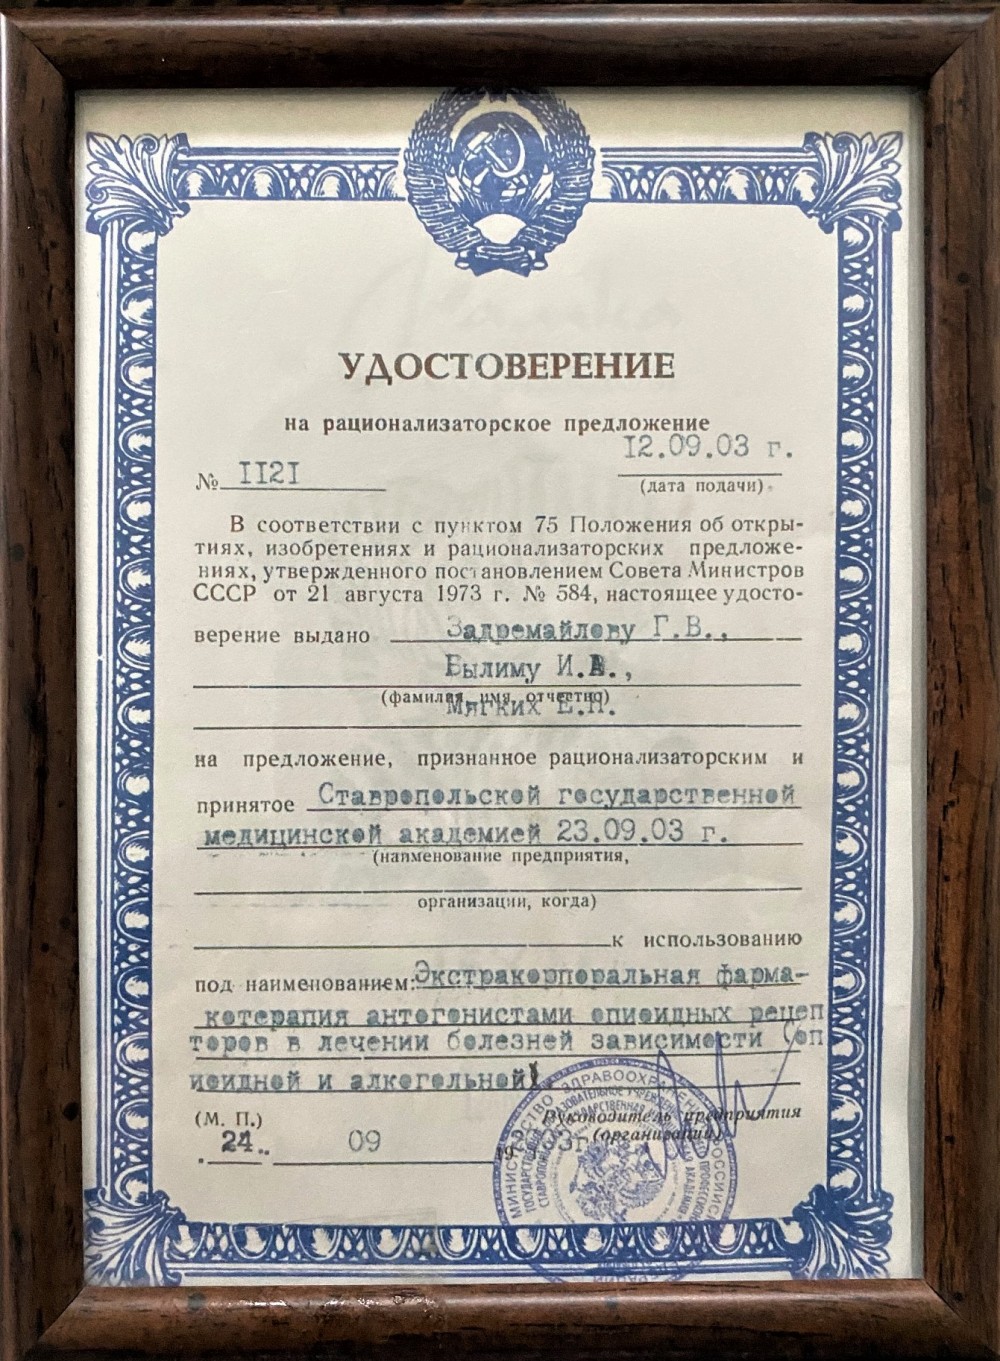 УДОСТОВЕРЕНИЕ
на рационализаторское предложение
12.09.03 г.
№ II2I
(дата подачи)
В соответствии с пунктом 75 Положения об откры-
тиях, изобретениях и рационализаторских предложе-
ниях, утвержденного постановлением Совета Министров
СССР от 21 августа 1973 г. № 584, настоящее удосто-
верение выдано Задремайлову Г.В.,
Былиму И.А.,
(фамилия, имя, отчество)
Мягких Е.Н.
на предложение, признанное рационализаторским и
принятое Ставропольской государственной
медицинской академией 23.09.03 г.
(наименование предприятия,
организации, когда)
к использованию
под наименованием: Экстракорпоральная фарма-
котерапия антогонистами опиоидных рецеп
торов в лечении болезней зависимости (оп
иоидной и алкогольной).
(М. П.)
Руководитель предприятия
(организации)
24. 09
МИНИСТЕРСТВО ЗДРАВООХРАНЕНИЯ РОССИЙСКОЙ ФЕДЕРАЦИИ